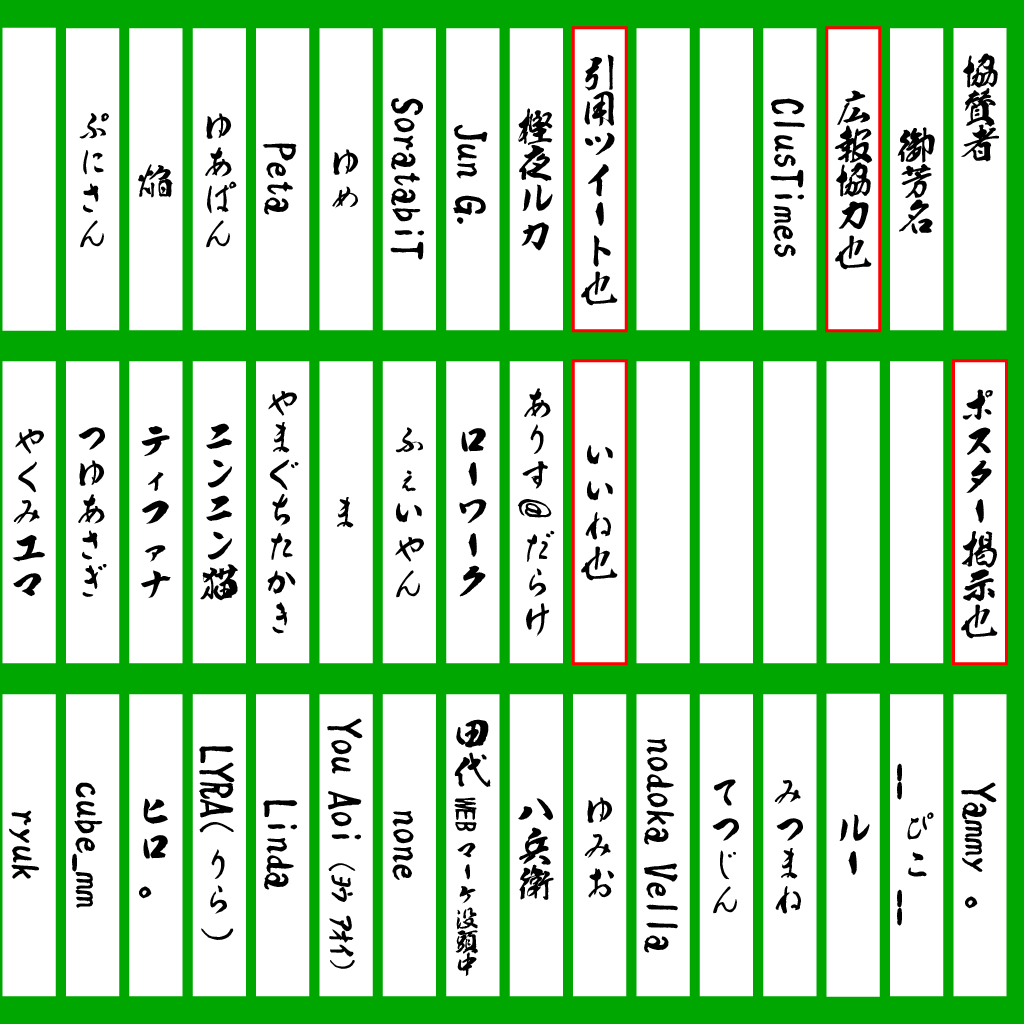 協賛者
御芳名
広報協力也
ClusTimes
引用ツイート也
樫夜ルカ
Jun G.
SoratabiT
ゆめ
Peta
ゆあぱん
焔
ぷにさん
ポスター掲示也
いいね也
ありす@だらけ
ローワーク
ふぇいやん
ま
やまぐちたかき
ニンニン猫
ティファナ
つゆあさぎ
やくみエマ
Yammy。
--ぴこ--
ルー
みつまね
てつじん
nodoka Vella
ゆみお
八兵衛
田代WEBマーケ没頭中
none
You Aoi (ヨウ アオイ)
Linda
LYRA(りら)
ヒロ。
cube_mm
ryuk